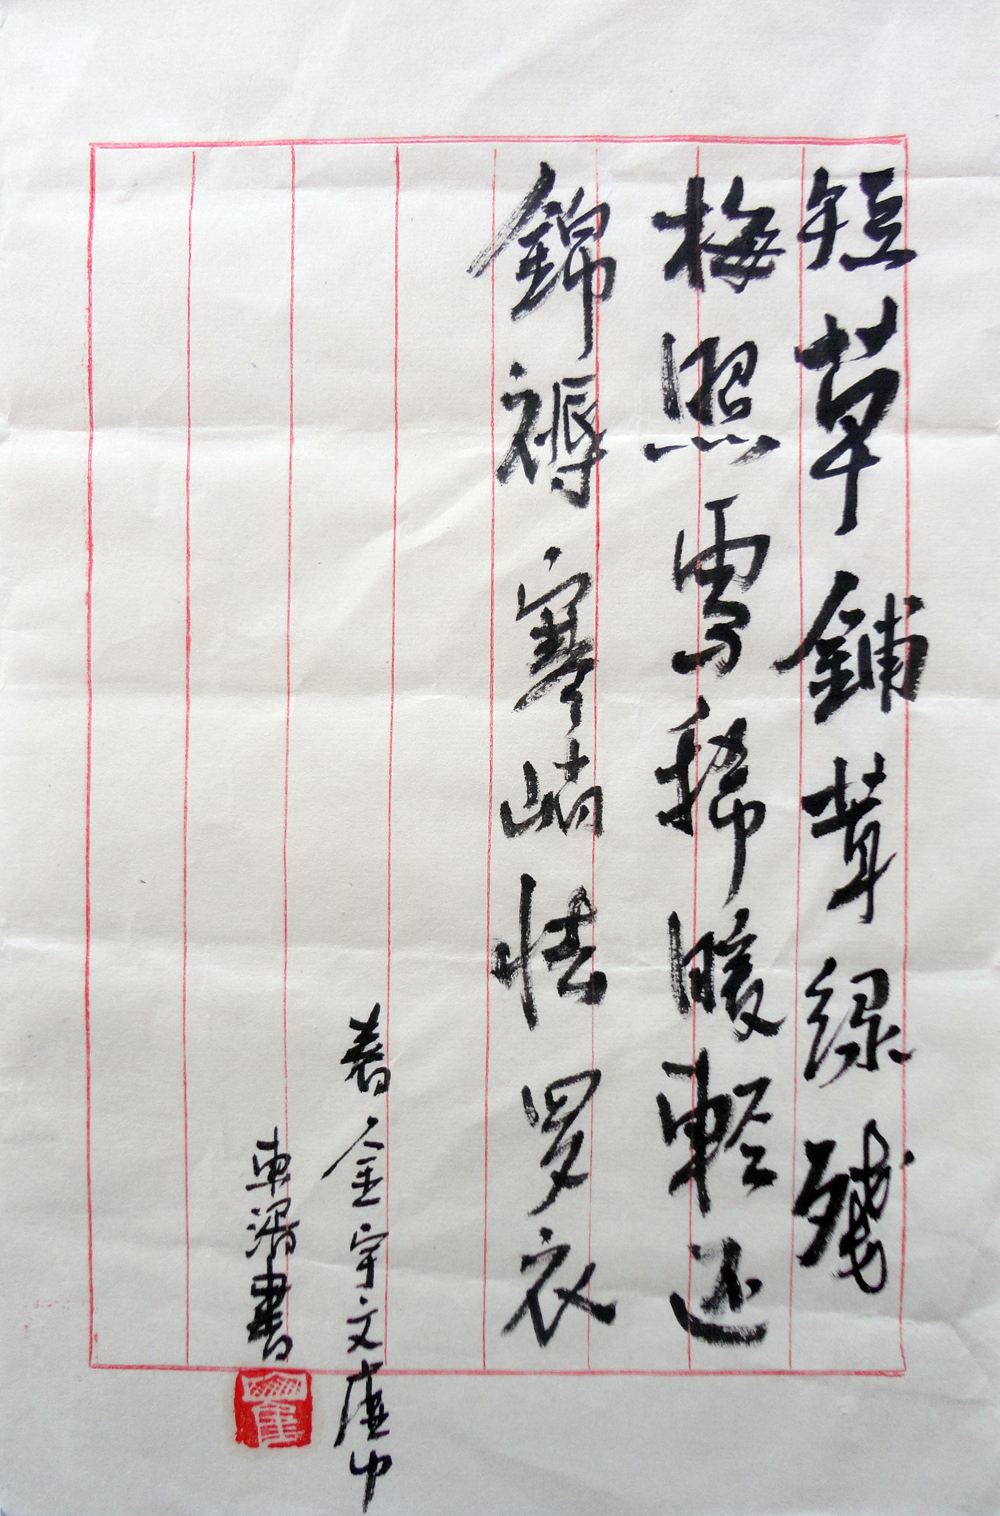 短草鋪茸绿殘
梅照雪稀暖輕还
錦褥寒峭怯罗衣
春金宇文虚中
東書